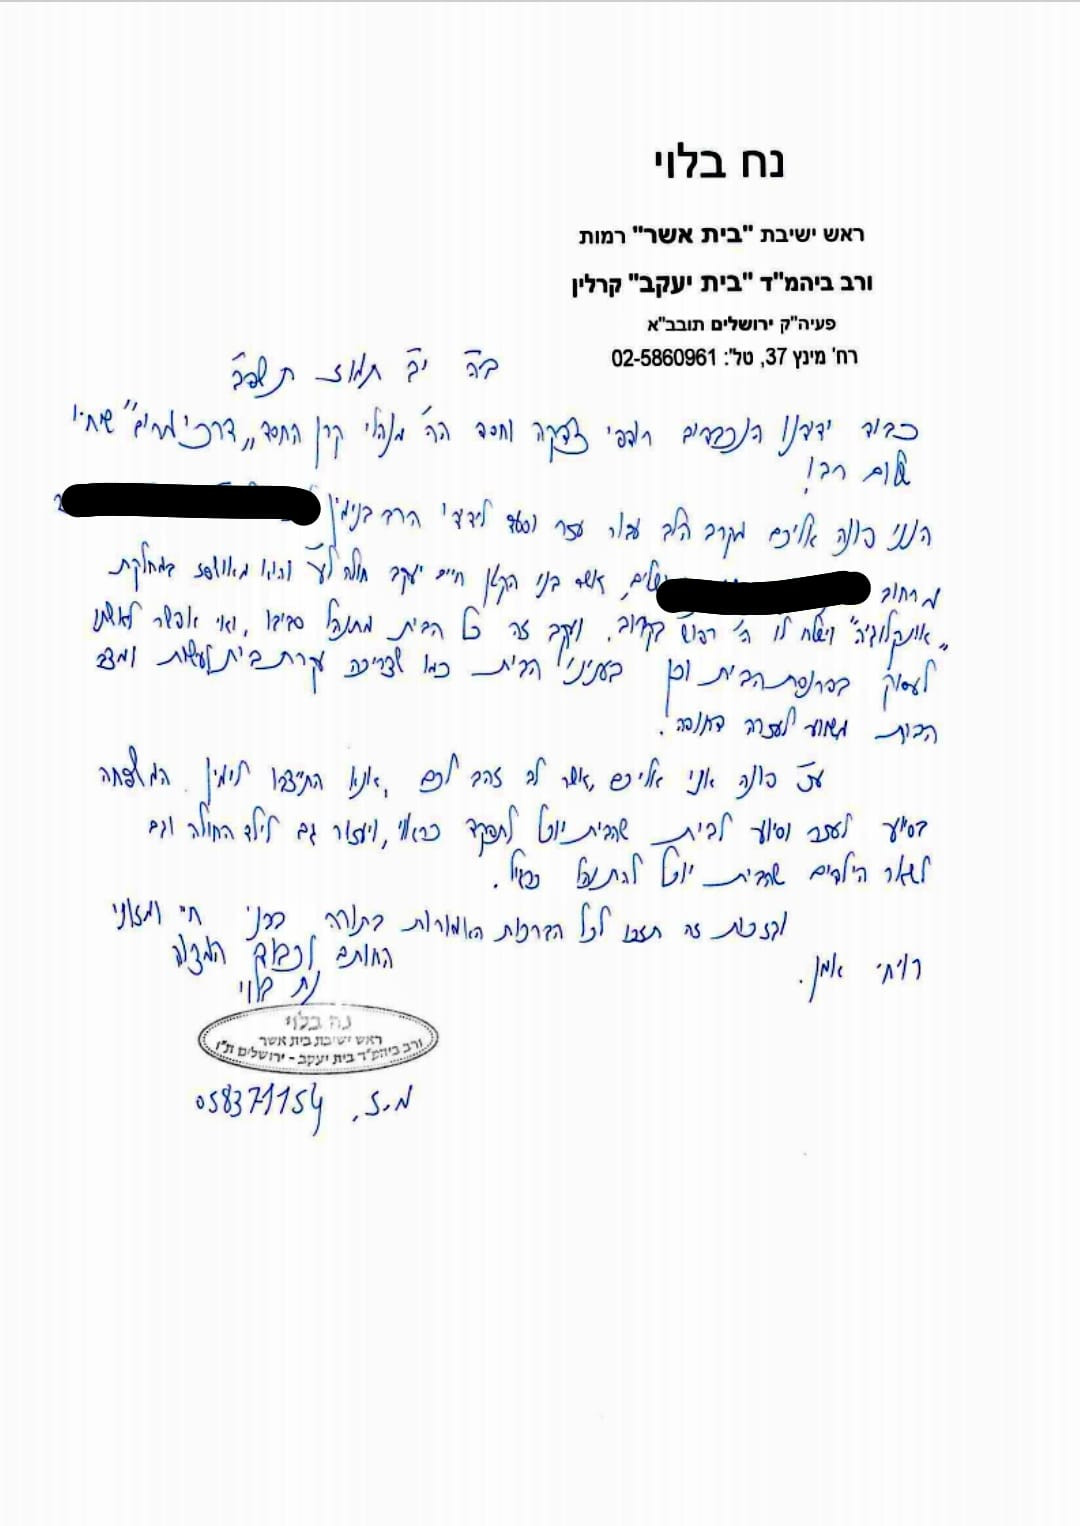 נח בלוי
ראש ישיבת "בית אשר" רמות
ורב ביהמ"ד "בית יעקב" קרלין
פעיה"ק ירושלים תובב"א
רח' מינץ 37, טל': 02-5860961
ב"ה י"ב תמוז תשפ"ב
כבוד ידידנו הנכבדים רודפי צדקה וחסד ה"ה מנהלי קרן החסד "דרכי מרים" שיחיו
שלום רב!
הנני פונה אליכם מקרב הלב עבור עזר וסעד לידידי הרב בנימין
מרחוב אשר בני הקטן חיים יעקב חולה ל"ע והוא מאושפז במחלקת
"אונקלוגיה" וישלח לו ה' רפו"ש בקרוב. ועקב זה כל הבית מתנהל סביבו, ואי אפשר לאשתו
לעסוק בפרנסת הבית וכן בעניני הבית כמו שצריכה עקרת בית לעשות ומצב
הבית משווע לעזרה דחופה.
ע"כ פונה אני אליכם, אשר לב זהב לכם, אנא התייצבו לימין המשפחה
בסיוע לעזר וסיוע לבית שהבית יוכל לתפקד כראוי, ויעזור גם לילד החולה וגם
לשאר הילדים שהבית יוכל להתנהל כרגיל.
ובזכות זה תזכו לכל הברכות האמורות בתורה בבני חיי ומזוני
רויחי אמן.
החותם לכבוד המצוה
נח בלוי
נח בלוי
ראש ישיבת בית אשר
ורב ביהמ"ד בית יעקב - ירושלים ת"ו
מ.ז. 0583711154